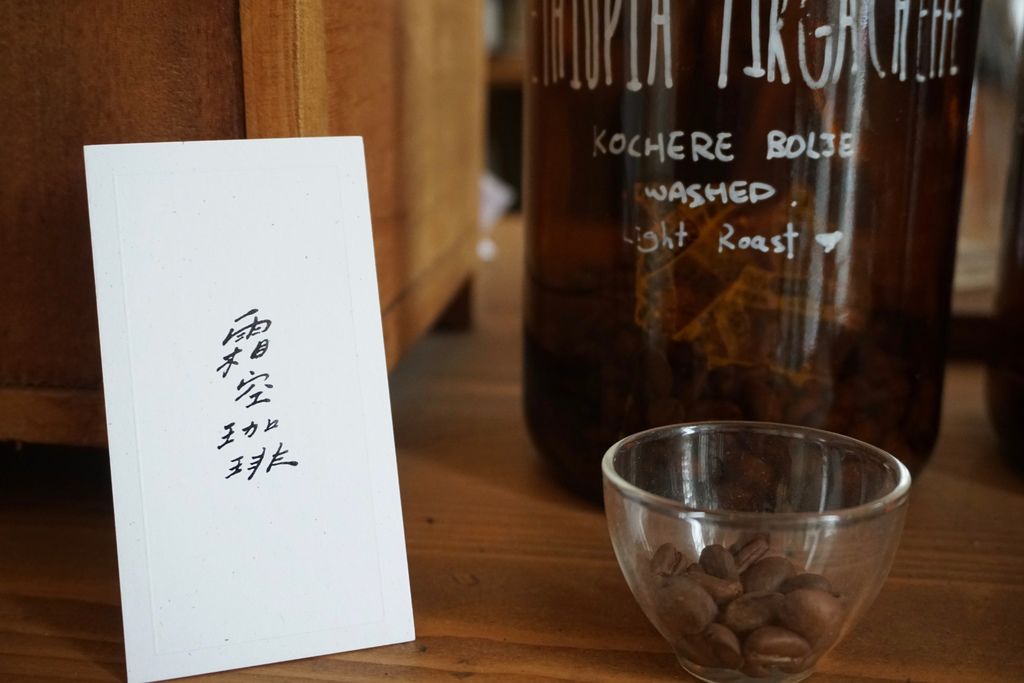 霜空珈琲
ETHIOPIA YIRGACHEFFE
KOCHERE BOLJE
WASHED.
Light Roast